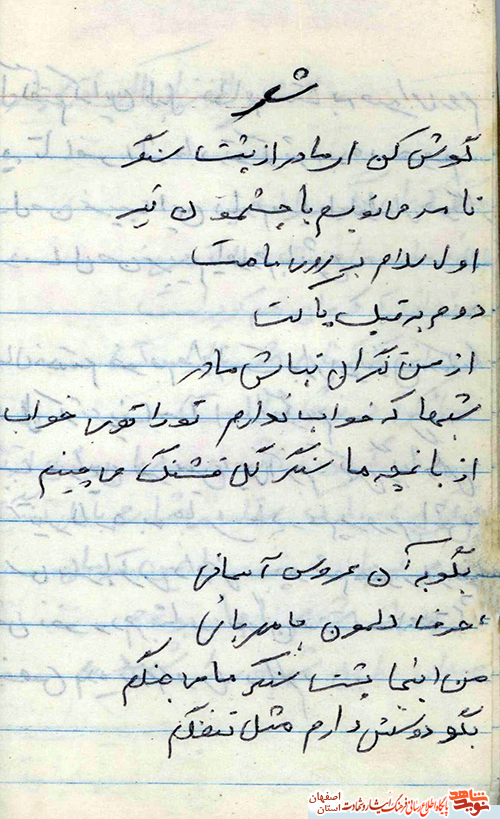 شعر
گوش کن ای مادر از پشت سنگر
نامه می نویسم با چشمون تر
اول سلام بر روی ماهت
دوم به قلب پاکت
از من نگران نباش مادر
شبها که خواب ندارم تو را توی خواب
از باغچه ما سنگر گل قشنگ می چینم
بگو به آن عروس آسمانی
حرف دلمون با مهربانی
من اینجا پشت سنگر ما می جنگم
بگو دوستش دارم مثل تفنگم
نوید شاهد
پایگاه اطلاع رسانی فرهنگ ایثار و شهادت
اصفهان
استان